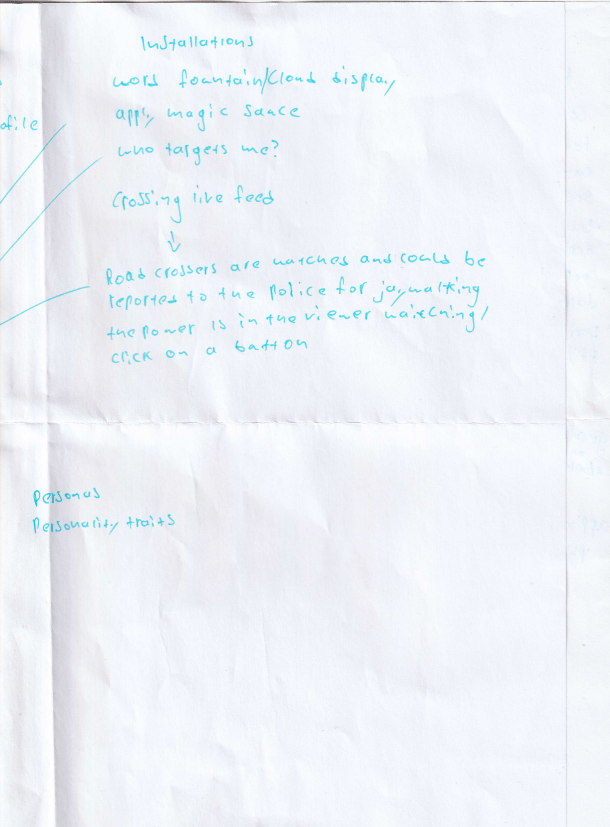 Installations
word fountain/Cloud display
apply magic sauce
ofile
who targets me?
Crossing live feed
Road crossers are watched and could be
reported to the police for jaywalking
the power is in the viewer watching/
click on a button
Personas
Personality traits